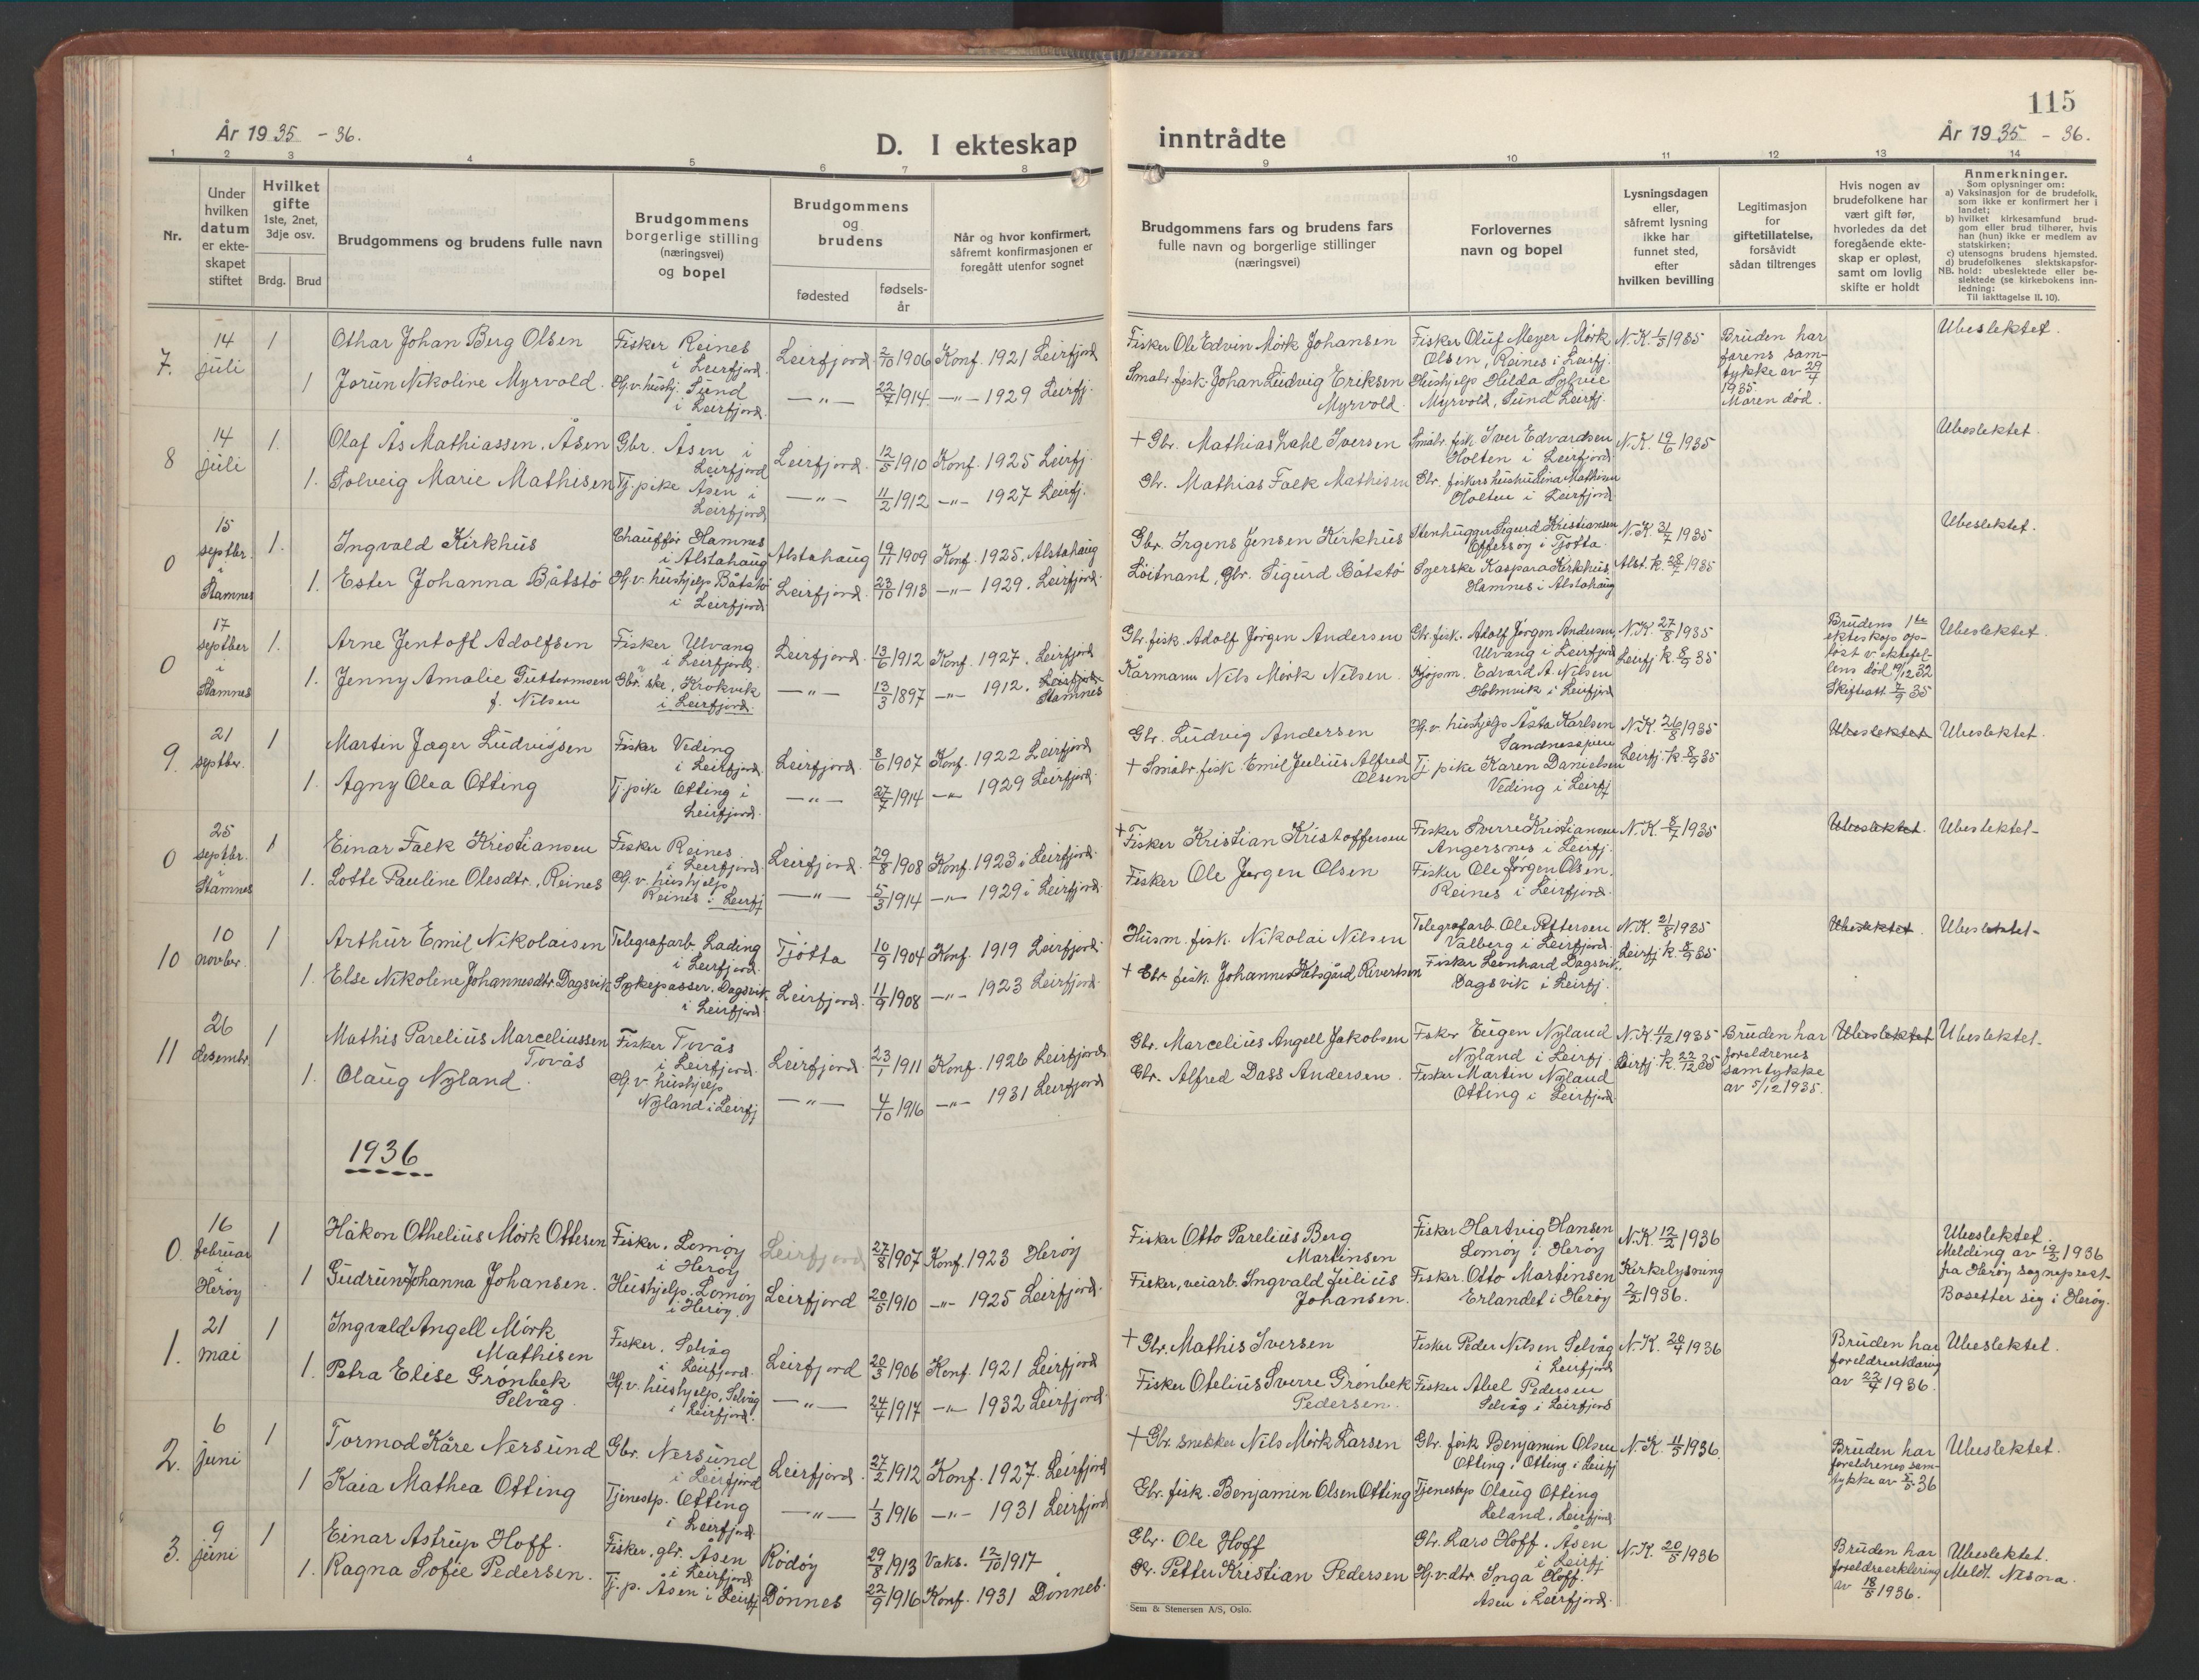 115
År 1935 - 36.
D. I ekteskap
inntrådte
År 1935 - 36.
1 2 3 4 5 6 7 8
9 10 11 12 13 14
Nr.
Under hvilken datum er ekteskapet stiftet
Hvilket gifte 1ste, 2net, 3dje osv.
Brdg. Brud
Brudgommens og brudens fulle navn
Brudgommens borgerlige stilling (næringsvei) og bopel
Brudgommens og brudens
fødested
fødselsår
Når og hvor konfirmert, såfremt konfirmasjonen er foregått utenfor sognet
Brudgommens fars og brudens fars fulle navn og borgerlige stillinger (næringsvei)
Forlovernes navn og bopel
Lysningsdagen eller, såfremt lysning ikke har funnet sted, efter hvilken bevilling
Legitimasjon for giftetillatelse, forsåvidt sådan tiltrenges
Hvis nogen av brudefolkene har vært gift før, hvorledes da det foregående ekteskap er opløst, samt om lovlig skifte er holdt
Anmerkninger.
Som oplysninger om:
a) Vaksinasjon for de brudefolk, som ikke er konfirmert her i landet;
b) hvilket kirkesamfund brudgom eller brud tilhører, hvis han (hun) ikke er medlem av statskirken;
c) utensogns brudens hjemsted.
d) brudefolkenes slektskapsforhold: ubeslektede eller beslektede (se kirkebokens innledning:
NB.
Til iakttagelse II. 10).
7. 14 juli 1 Othar Johan Berg Olsen Fisker Reines i Leirfjord Leirfjord 2/10 1906 Konf. 1921 Leirfjord
1 Jorun Nikoline Myrvold Hj.v. hushj. Sund i Leirfjord. —"— 22/7 1914 —"— 1929 Leirfj.
Fisker Ole Edvin Mörk Johansen Fisker Oluf Meyer Mörk Olsen, Reines i Leirfj. N.K. 1/5 1935 Bruden har farens samtykke av 29/4 1935 Moren död. Ubeslektet.
Småbr. fisk. Johan Ludvig Eriksen Myrvold Hushjelp Hilda Sylvie Myrvold, Sund Leirfj.
8 14 juli 1. Olaf Ås Mathiassen, Åsen Gbr. Åsen i Leirfjord Leirfjord 12/5 1910 Konf. 1925 Leirfj.
1. Solveig Marie Mathisen Tj. pike Åsen i Leirfjord —"— 11/2 1912 —"— 1927 Leirfj.
+ Gbr. Mathias Zahl Iversen Småbr. fisk Iver Edvardsen Holten i Leirfjord N.K. 19/6 1935 Ubeslektet.
Gbr. Mathias Falk Mathisen Holten i Leirfjord
0 15 septbr. i Stamnes 1. Ingvald Kirkhus Chauffør Hamnes i Alstahaug Alstahaug 19/11 1909 Konf. 1925, Alstahaug
1. Ester Johanna Båtstö Hj.v. hushjelp Båtstö i Leirfjord Leirfjord 23/10 1913 —"— 1929. Leirfjord
Gbr. Irgens Jensen Kirkhus Stenhugger Sigurd Kristiansen Offersöy i Tjötta. N.K. 31/7 1935 Ubeslektet.
Löitnant, Gbr. Sigurd Båtstö Syerske Kaspara Kirkhus, Hamnes i Alstahaug Alst. k. 28/7 1935
0 17 septber i Stamnes 1. Arne Jentoft Adolfsen Fisker Ulvang i Leirfjord. Leirfjord. 13/6 1912 Konf. 1927. Leirfjord
1. Jenny Amalie Guttormsen f. Nilsen Gbr.ske, Krokvik i Leirfjord. —"— 13/3 1897 —"— 1912. Leirfjord Stamnes
Gbr. fisk. Adolf Jörgen Andersen Gbr. fisk. Adolf Jörgen Andersen, Ulvang i Leirfjord N.K. 27/8 1935 Brudens 1ste ekteskap oplöst v. ektefellens död 19/12 32 Skifteatt. 2/9 35 Ubeslektet.
Kårmann Nils Mörk Nilsen. Kjöpm. Edvard A. Nilsen Holmvik i Leirfjord Leirfj k. 8/9 35
9. 21 septbr. 1 Martin Jæger Ludvigsen Fisker Veding i Leirfjord Leirfjord. 8/6 1907 Konf. 1922 Leirfjord
1. Agny Olea Otting Tj.pike Otting i Leirfjord. —"— 27/7 1914 —"— 1929 Leirfjord.
Gbr. Ludvig Andersen Hj.v. hushjelp Åsta Karlsen N.K. 26/8 1935 Ubeslektet Ubeslektet.
+ Småbr. fisk. Emil Julius Alfred Olsen Tj. pike Karen Danielsen Veding i Leirfj Leirfj. k. 8/9 35
0 25 septbr. i Stamnes 1 Einar Falk Kristiansen Fisker Reines i Leirfjord Leirfjord 29/8 1908 Konf. 1923 i Leirfjord
1. Lotte Pauline Olesdtr. Reines Hj.v. hushjelp Reines i Leirfj —"— 5/3 1914 —"— 1929 i Leirfjord.
+ Fisker Kristian Kristoffersen Fisker Sverre Kristiansen Angersnes i Leirfj. N.K. 8/7 1935 Ubeslektet. Ubeslektet-
Fisker Ole Jörgen Olsen Fisker Ole Jörgen Olsen. Reines i Leirfjord.
10 10 novber. 1 Arthur Emil Nikolaisen Telegrafarb. Lading i Leirfjord. Tjötta 10/9 1904 Konf. 1919 Leirfjord
1. Else Nikoline Johannesdtr. Dagsvik Sykepasser. Dagsvik i Leirfjord Leirfjord 11/9 1908 —"— 1923 Leirfjord.
Husm. fisk. Nikolai Nilsen Telegrafarb. Ole Pettersen Valberg i Leirfjord. N.K. 21/8 1935 Ubeslektet. Ubeslektet-
+ Gbr fisk. Johannes Rivertsen Fisker Leonhard Dagsvik, Dagsvik i Leirfj. Leirfj k. 8/9 35
11 26 desembr. 1 Mathis Parelius Marceliussen Tovås Fisker Tovås i Leirfjord. Leirfjord. 23/1 1911 Konf. 1926 Leirfjord
1. Olaug Nyland. Hj.v. hushjelp Nyland i Leirfj —"— 4/10 1916 —"— 1931 Leirfjord
Gbr. Marcelius Angell Jakobsen Fisker Eugen Nyland Nyland i Leirfj. N.K. 4/12 1935 Bruden har foreldrenes samtykke av 5/12 1935. Ubeslektet Ubeslektet.
Gbr. Alfred Dass Andersen. Fisker Martin Nyland Otting i Leirfjord Leirfj. k. 22/12 35
1936
0. 16 februar i Heröy 1 Håkon Othelius Mörk Ottesen Fisker. Lomöy i Heröy Leirfjord 27/8 1907 Konf. 1923 Heröy
1 Gudrun Johanna Johansen. Hushjelp. Lomöy i Heröy. Leirfjord 20/5 1910 —"— 1925 Leirfjord.
Fisker Otto Parelius Berg Martinsen Fisker Hartvig Hansen Lomöy i Heröy N.K. 12/2 1936 Ubeslektet. Melding av 19/2 1936 fra Heröy sogneprest- Bosetter sig i Heröy.
Fisker, veiarb. Ingvald Julius Johansen. Fisker. Otto Martinsen Erlandet i Heröy Kirkelysning 2/2 1936.
1. 21 mai 1 Ingvald Angell Mörk Mathisen Fisker. Selvåg i Leirfjord. Leirfjord 20/3 1906 Konf. 1921 Leirfjord
1. Petra Elise Grönbek Selvåg Hj.v. hushjelp. Selvåg i Leirfjord. —"— 24/4 1917 —"— 1932 Leirfjord.
+ Gbr. Mathis Iversen Fisker Peder Nilsen Selvåg i Leirfjord N.K. 20/4 1936 Bruden har foreldreerklæring av 23/4 1936. Ubeslektet.
Fisker Otelius Sverre Grönbek Pedersen. Fisker Abel Pedersen Selvåg i Leirfjord
2. 6 juni 1 Tormod Kåre Nersund Gbr. Nersund i Leirfjord Leirfjord. 27/2 1912 Konf. 1927. Leirfjord
1 Kaia Mathea Otting Tjenestp. Otting i Leirfjord. —"— 1/3 1916 —"— 1931 Leirfjord
+ Gbr. snekker Nils Mörk Larsen Gbr. fisk Benjamin Olsen Otting, Otting i Leirfj N.K. 11/5 1936 Bruden har foreldrenes samtykke av 5/5 36 Ubeslektet.
Gbr. fisk. Benjamin Olsen Otting Tjenestep Olaug Otting Leland. Leirfjord.
3. 9 juni 1 Einar Astrup Hoff. Fisker. gbr. Åsen i Leirfjord Rödöy 29/8 1913 Vaks. 12/10 1917
1. Ragna Sofie Pedersen. Tj.p. Åsen i Leirfj Dönnes 22/9 1916 Konf. 1931 Dönnes.
Gbr. Ole Hoff Gbr. Lars Hoff. Åsen i Leirfj N.K. 20/5 1936 Bruden har foreldreerklering av 18/5 1936. Ubeslektet. Meldt. Nesna.
Gbr. Petter Kristian Pedersen Hj.v.dtr Inga Hoff. Åsen i Leirfjord.
Sem & Stenersen A/S, Oslo.